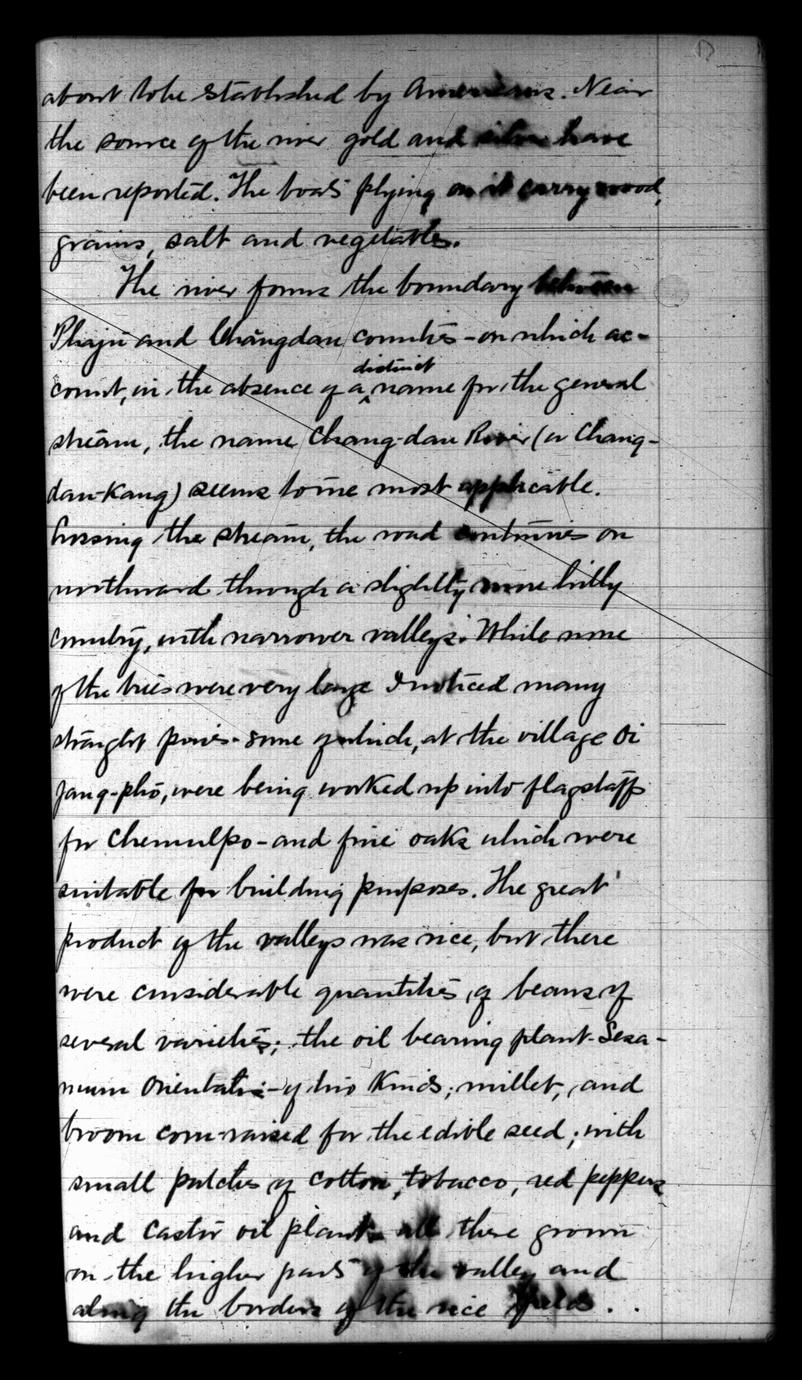 about to be established by Americans. Near
the source of the river gold and silver have
been reported. The boats plying on it carry wood,
grains, salt and vegetables.
The river forms the boundary between
Phaju and Changdan counties - on which ac-
count, in the absence of a distinct name for the general
stream, the name Chang-dan River (or Chang-
dan-Kang) seems to me most applicable.
Crossing the stream, the road continues on
northward through a slightly more hilly
country, with narrower valleys. While none
of the trees were very large I noticed many
straight pines - some of which, at the village Oi
jang-pho, were being worked up into flagstaffs
for Chemulpo - and fine oaks which were
suitable for building purposes. The great
product of the valleys was rice, but there
were considerable quantities of beans of
several varieties; the oil bearing plant - Sesa-
mum Orientalis - of two kinds; millet, and
broom corn raised for the edible seed; with
small patches of cotton, tobacco, red peppers
and castor oil plants all these grown
on the higher parts of the valley and
along the borders of the rice fields.